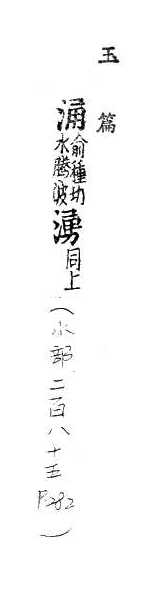 玉篇
涌俞種切水騰波湧同上（水部二百八十五P.282）